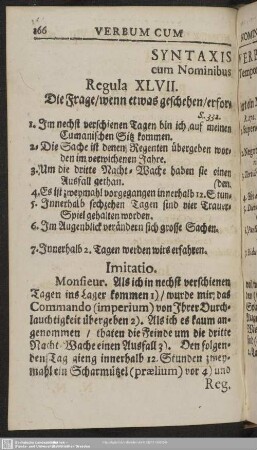 166 VERBUM CUM
SYNTAXIS
cum Nominibus
Regula XLVII.
Die Frage/wenn etwas geschehen/erfor⸗
S. 332.
1. Im nechst verschienen Tagen bin ich auf meinen
Cumanischen Sitz kommen.
2. Die Sache ist denen Regenten übergeben wor⸗
den im verwichenen Jahre.
3. Um die dritte Nacht⸗Wache haben sie einen
Ausfall gethan. (den.
4. Es ist zweymahl vorgegangen innerhalb 12. Stun⸗
5. Innerhalb sechzehen Tagen sind vier Trauer⸗
Spiel gehalten worden.
6. Im Augenblick verändern sich grosse Sachen.
7. Innerhalb 2. Tagen werden wirs erfahren.
Imitatio.
Monsieur. Als ich in nechst verschienen
Tagen ins Lager kommen 1)/ wurde mir das
Commando (imperium) von Ihrer Durch⸗
lauchtigkeit übergeben 2). Als ich es kaum an⸗
genommen / thaten die Feinde um die dritte
Nacht⸗Wache einen Ausfall 3). Den folgen⸗
den Tag gieng innerhalb 12. Stunden zwey⸗
mahl ein Scharmützel (prælium) vor 4) und
Reg.